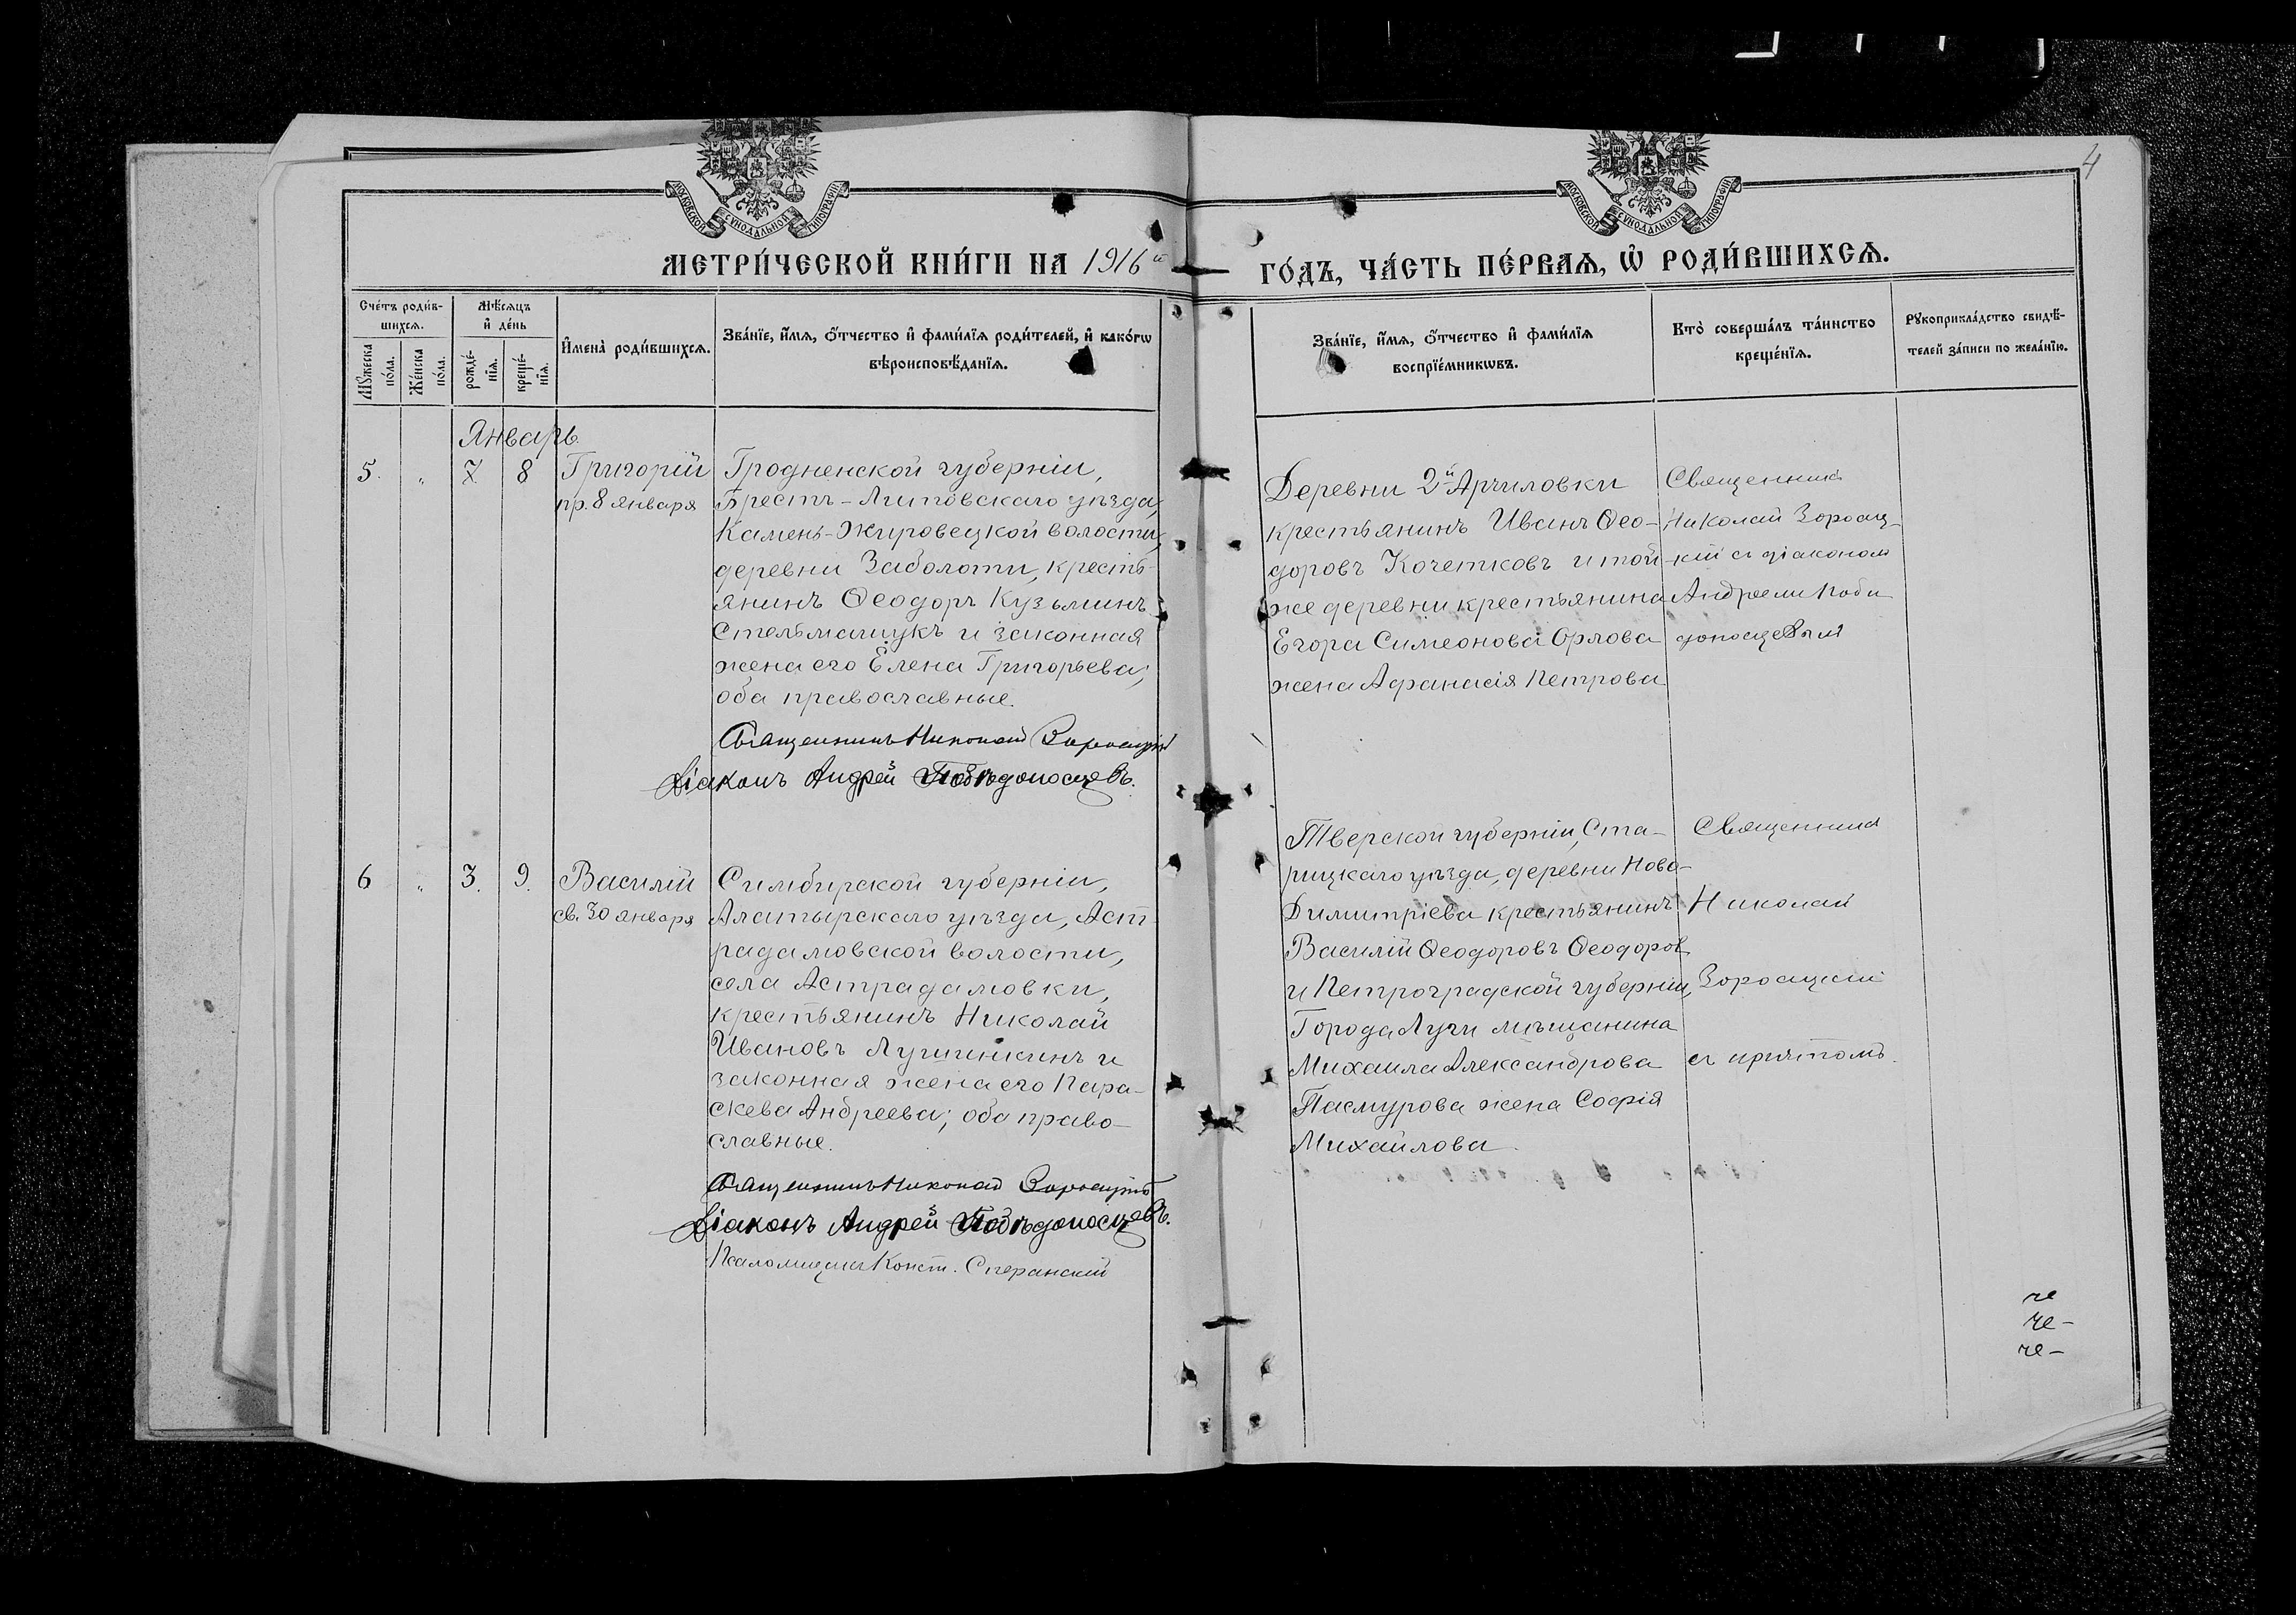 4
МОСКОВСКОЙ СѴНОДАЛЬНОЙ ТИПОГРАФІИ
МОСКОВСКОЙ СѴНОДАЛЬНОЙ ТИПОГРАФІИ
МЕТРИ́ЧЕСКОЙ КНИ́ГИ НА 1916й
ГО́ДЪ, ЧА́СТЬ ПЕ́РВАЯ, Ѡ҆ РОДИ́ВШИХСЯ.
Сче́тъ роди́в-
шихся.
Мѣ́сяцъ
и҆ де́нь
Мꙋ́жеска
по́ла.
Же́нска
по́ла.
рожде́-
нїя.
креще́-
нїя.
И҆мена̀ роди́вшихся.
Зва́нїе, и҆́мя, ѻ҆́тчество и҆ фами́лїя роди́телей, и҆ како́гѡ
вѣроисповѣ́данїя.
Зва́нїе, и҆́мя, ѻ҆́тчество и҆ фами́лїя
воспрїе́мникѡвъ.
Кто̀ соверша́лъ та́инство
креще́нїя.
Рꙋкоприкла́дство свидѣ́-
телей за́писи по жела́нїю.
Январь.
5. „ 7 8 Григорій
пр. 8 января
Гродненской губерніи,
Брестъ-Литовскаго уѣзда,
Камень-Жировецкой волости,
деревни Заболоти, кресть-
янинъ Ѳеодоръ Кузьминъ
Стельмащукъ и законная
жена его Елена Григорьева;
оба православные.
Священникъ Николай
Діаконъ Андрей Побѣдоносцевъ.
Деревни 2й Арчиловки
крестьянинъ Иванъ Ѳео-
доровъ Кочетковъ и той-
же деревни крестьянина
Егора Симеонова Орлова
жена Афанасія Петрова
Священникъ
Николай
кій съ діакономъ
Андреемъ Побѣ
доносцевымъ
6 „ 3. 9. Василій
св. 30 января
Симбирской губерніи,
Алатырскаго уѣзда, Аст-
радамовской волости,
села Астрадамовки,
крестьянинъ Николай
Ивановъ Лушинкинъ и
законная жена его Пара-
скева Андреева; оба право-
славные.
Священникъ Николай
Діаконъ Андрей Побѣдоносцевъ.
Псаломщикъ Конст. Сперанскій
Тверской губерніи, Ста-
рицкаго уѣзда, деревни Ново-
Димитріева крестьянинъ
Василій Ѳеодоровъ Ѳеодоров
и Петроградской губерніи,
Города Луги мѣщанина
Михаила Александрова
Пасмурова жена Софія
Михайлова.
Священникъ
Николай
съ причтомъ.
че
че-
че-